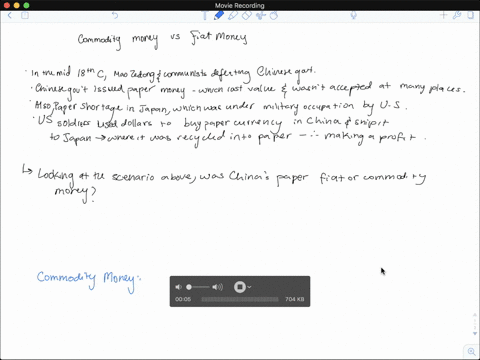 Movie Recording
Commodity money vs fiat Money
· In the mid 18th C, Mao Zedong & communists defeating Chinese govt.
· Chinese gov't issued paper money - which lost value & wasn't accepted at many places.
· Also, Paper shortage in Japan, which was under military occupation by U.S.
· US soldiers used dollars to buy paper currency in China & ship it
to Japan → where it was recycled into paper - ∴ making a profit.
↳ Looking at the scenario above, was China's paper fiat or commodity
money?
Commodity Money:
00:05 704 KB